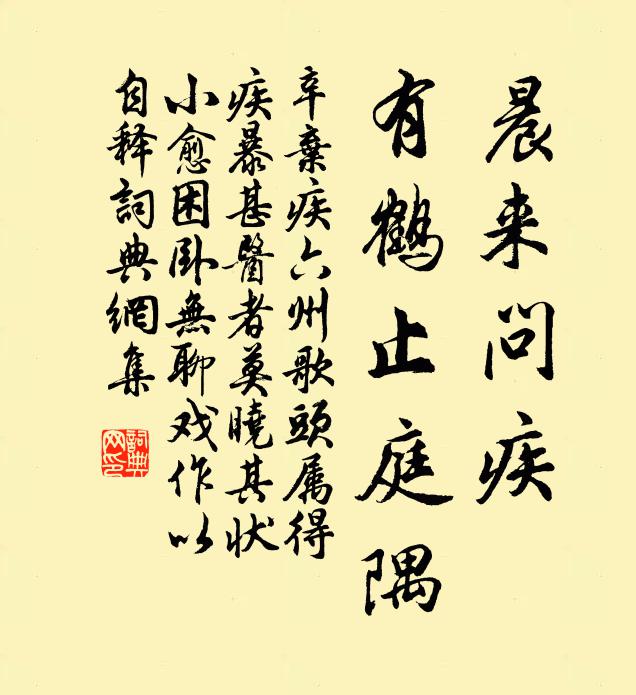 晨来问疾
有鹤止庭隅
辛棄疾六州歌頭属得
疾暴甚醫者莫曉其状
小愈困卧無聊戏作以
自释詞典網集
詞典网印